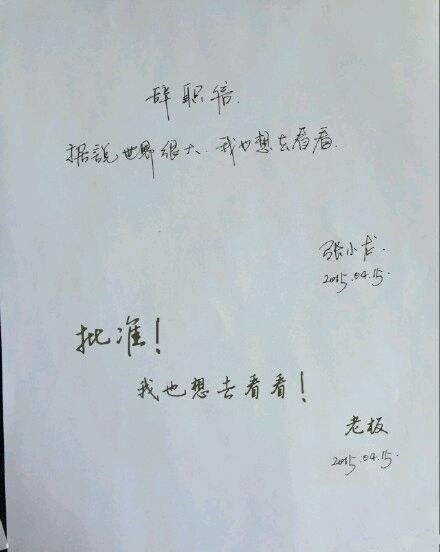 辞职信.
据说世界很大.我也想去看看.
张小龙
2015.04.15.
批准!
我也想去看看!
老板
2015.04.15.